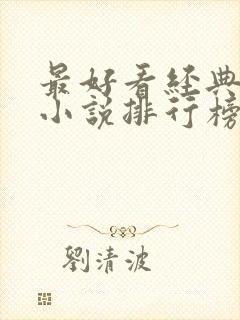 最好看經典
小說排行榜
劉清波